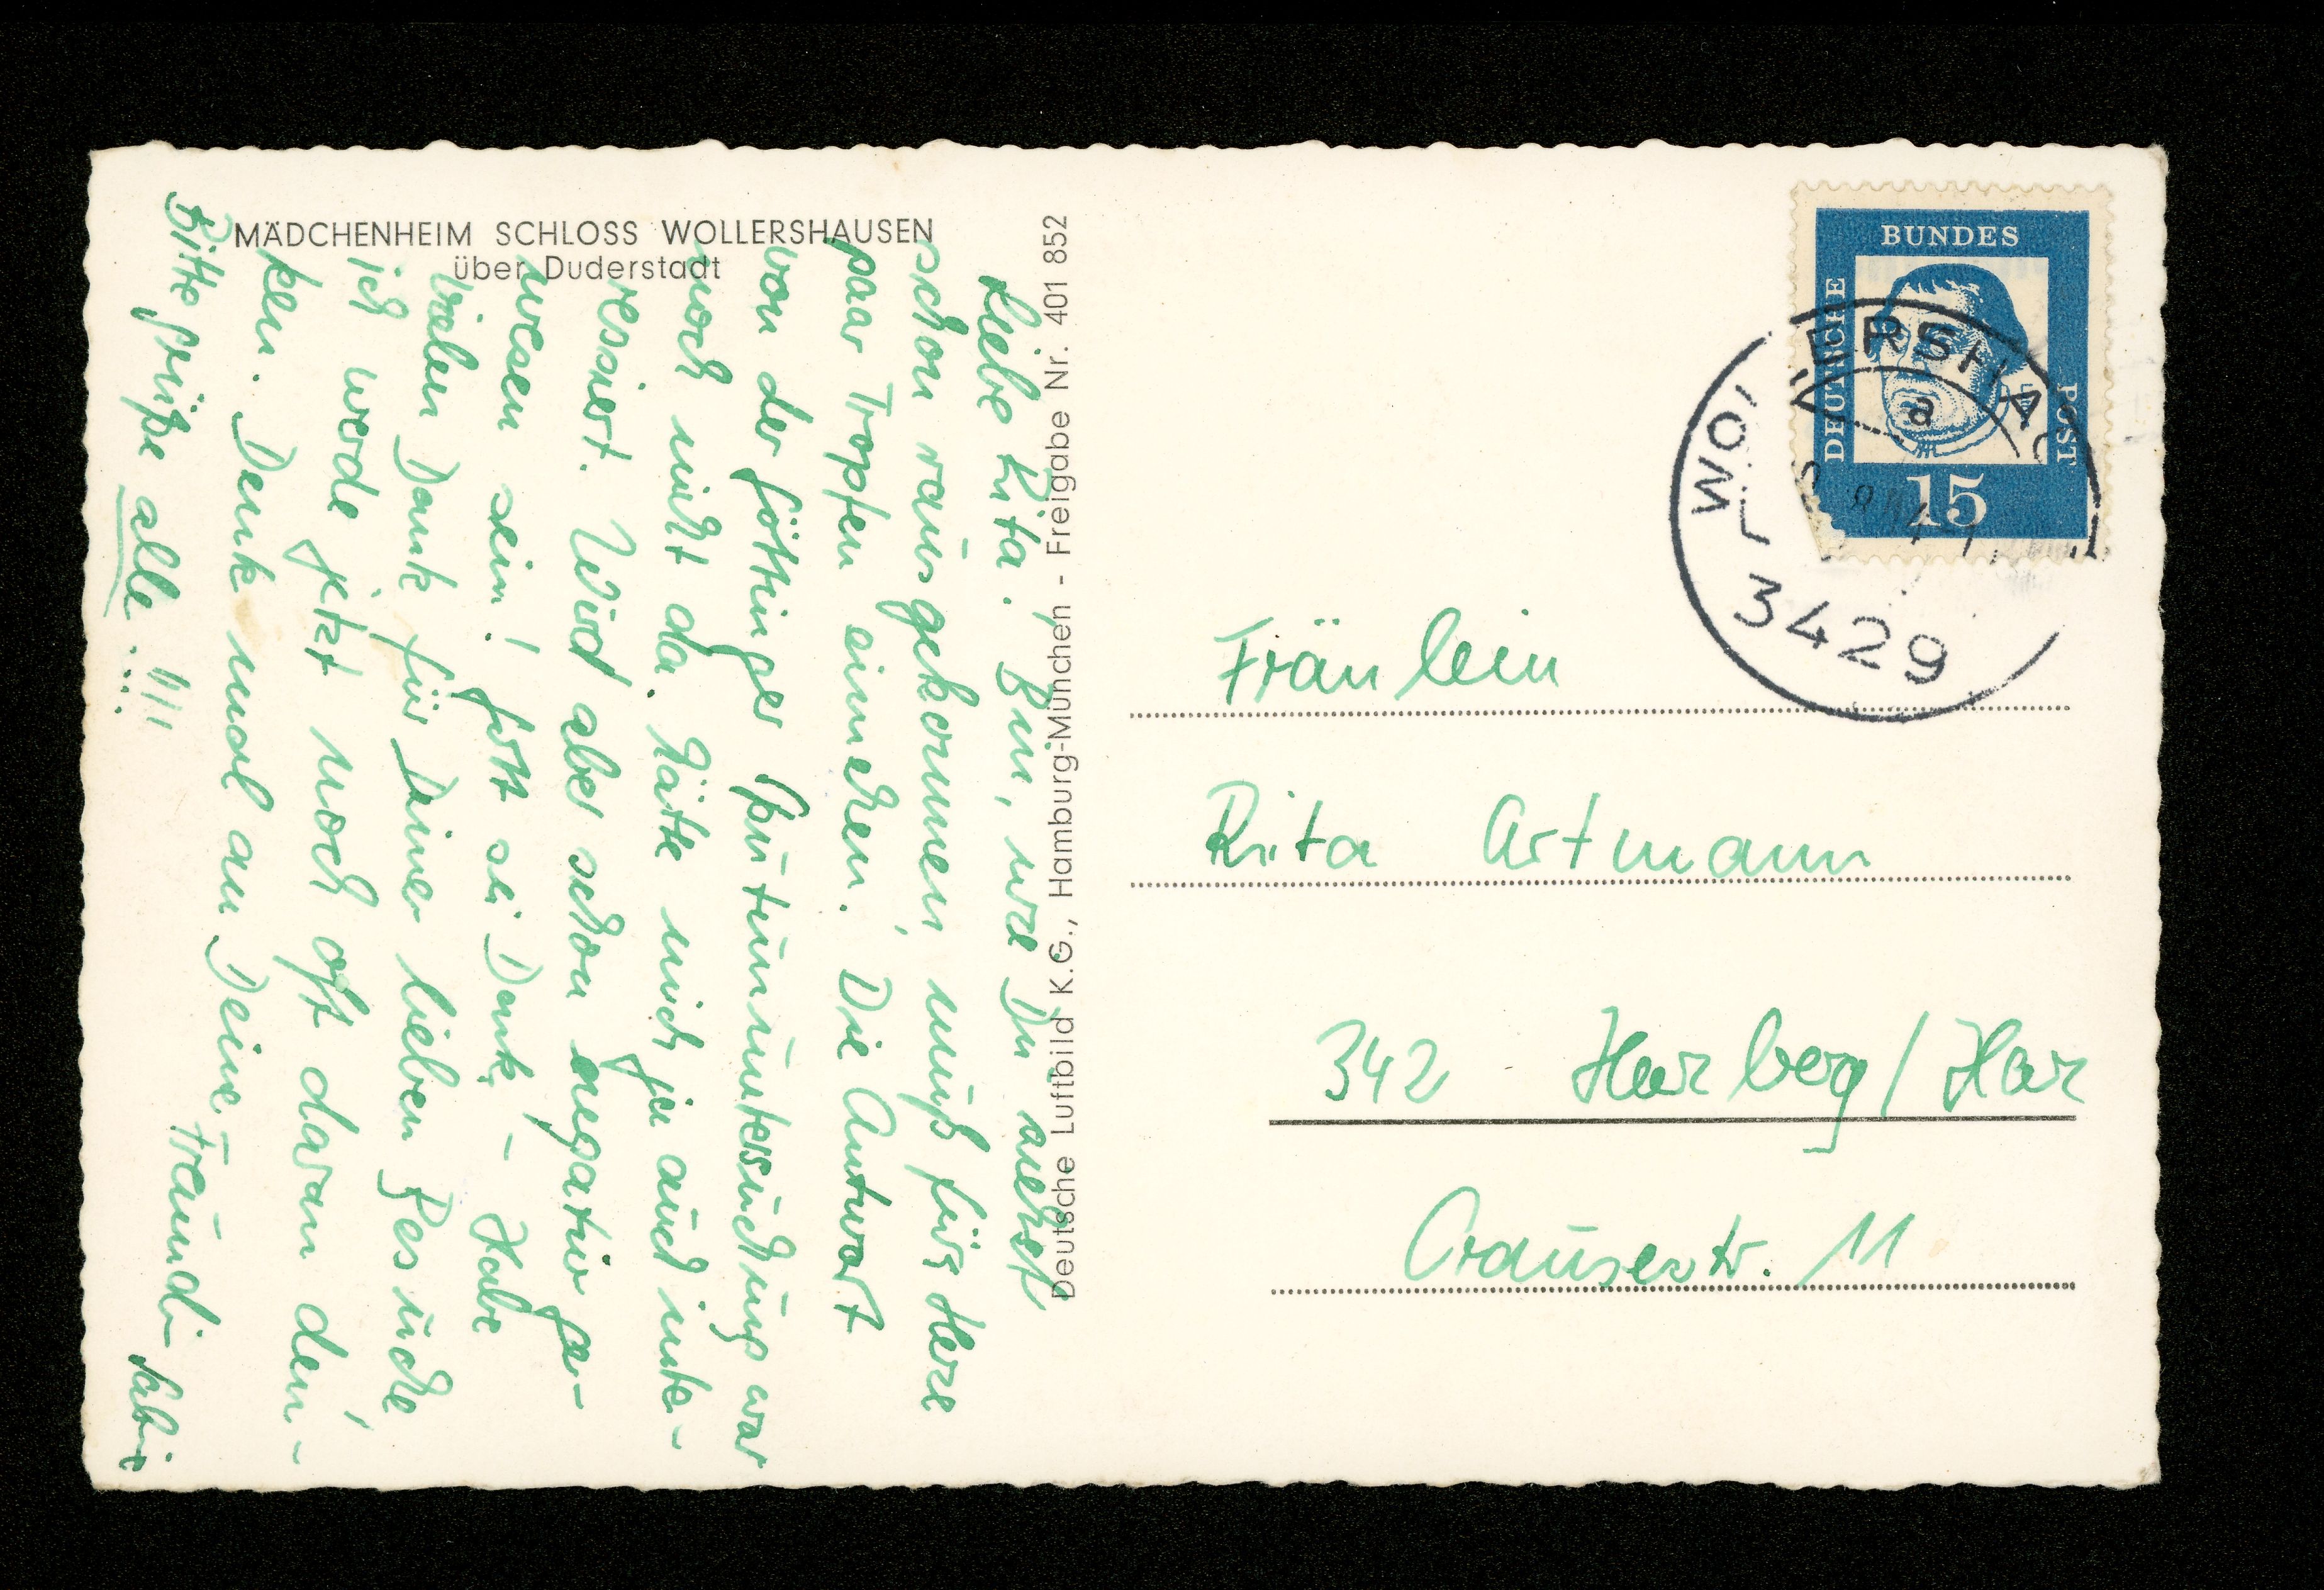 MÄDCHENHEIM SCHLOSS WOLLERSHAUSEN
über Duderstadt
Liebe Rita! Bin, wie Du siehst
schon rausgekommen, muß fürs Herz
paar Tropfen einnehmen. Die Antwort
von der Göttinger Sputumuntersuchung war
noch nicht da. Hätte mich ja auch inte-
ressiert. Wird aber schon negativ ge-
wesen sein! Gott sei Dank. – Habe
vielen Dank für Deine lieben Besuche,
ich werde jetzt noch oft daran den-
ken. Denk mal an Deine Traundi
Bitte grüße alle !!!
Deutsche Luftbild K.G., Hamburg-München - Freigabe Nr. 401 852
DEUTSCHE BUNDES POST
15
WOLLERSHAUS
a
3429
Fräulein
Rita Artmann
342 Herzberg/Har
str. 11